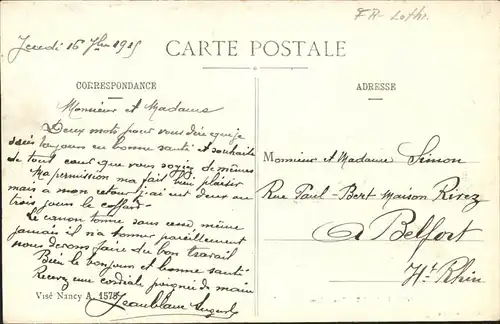 FR-Loth.
Jeudi 16 7bre 1915
CARTE POSTALE
CORRESPONDANCE
ADRESSE
Monsieur et Madame
Deux mots pour vous dire que je
suis toujours en bonne santé et souhaite
de tout cœur que vous soyez de même
Ma permission ma fait bien plaisir
mais a mon retour j'ai eut deux ou
trois jours le caffart
Le canon tonne sans cesse même
jamais il n'a tonner pareillement
nous devons faire du bon travail
Bien le bonjour et bonne santé
Recevez une cordiale poignée de main
Jeanblanc Auguste
Visé Nancy A. 1578
Monsieur et Madame Simon
Rue Paul-Bert Maison Rirez
A Belfort
Ht Rhin